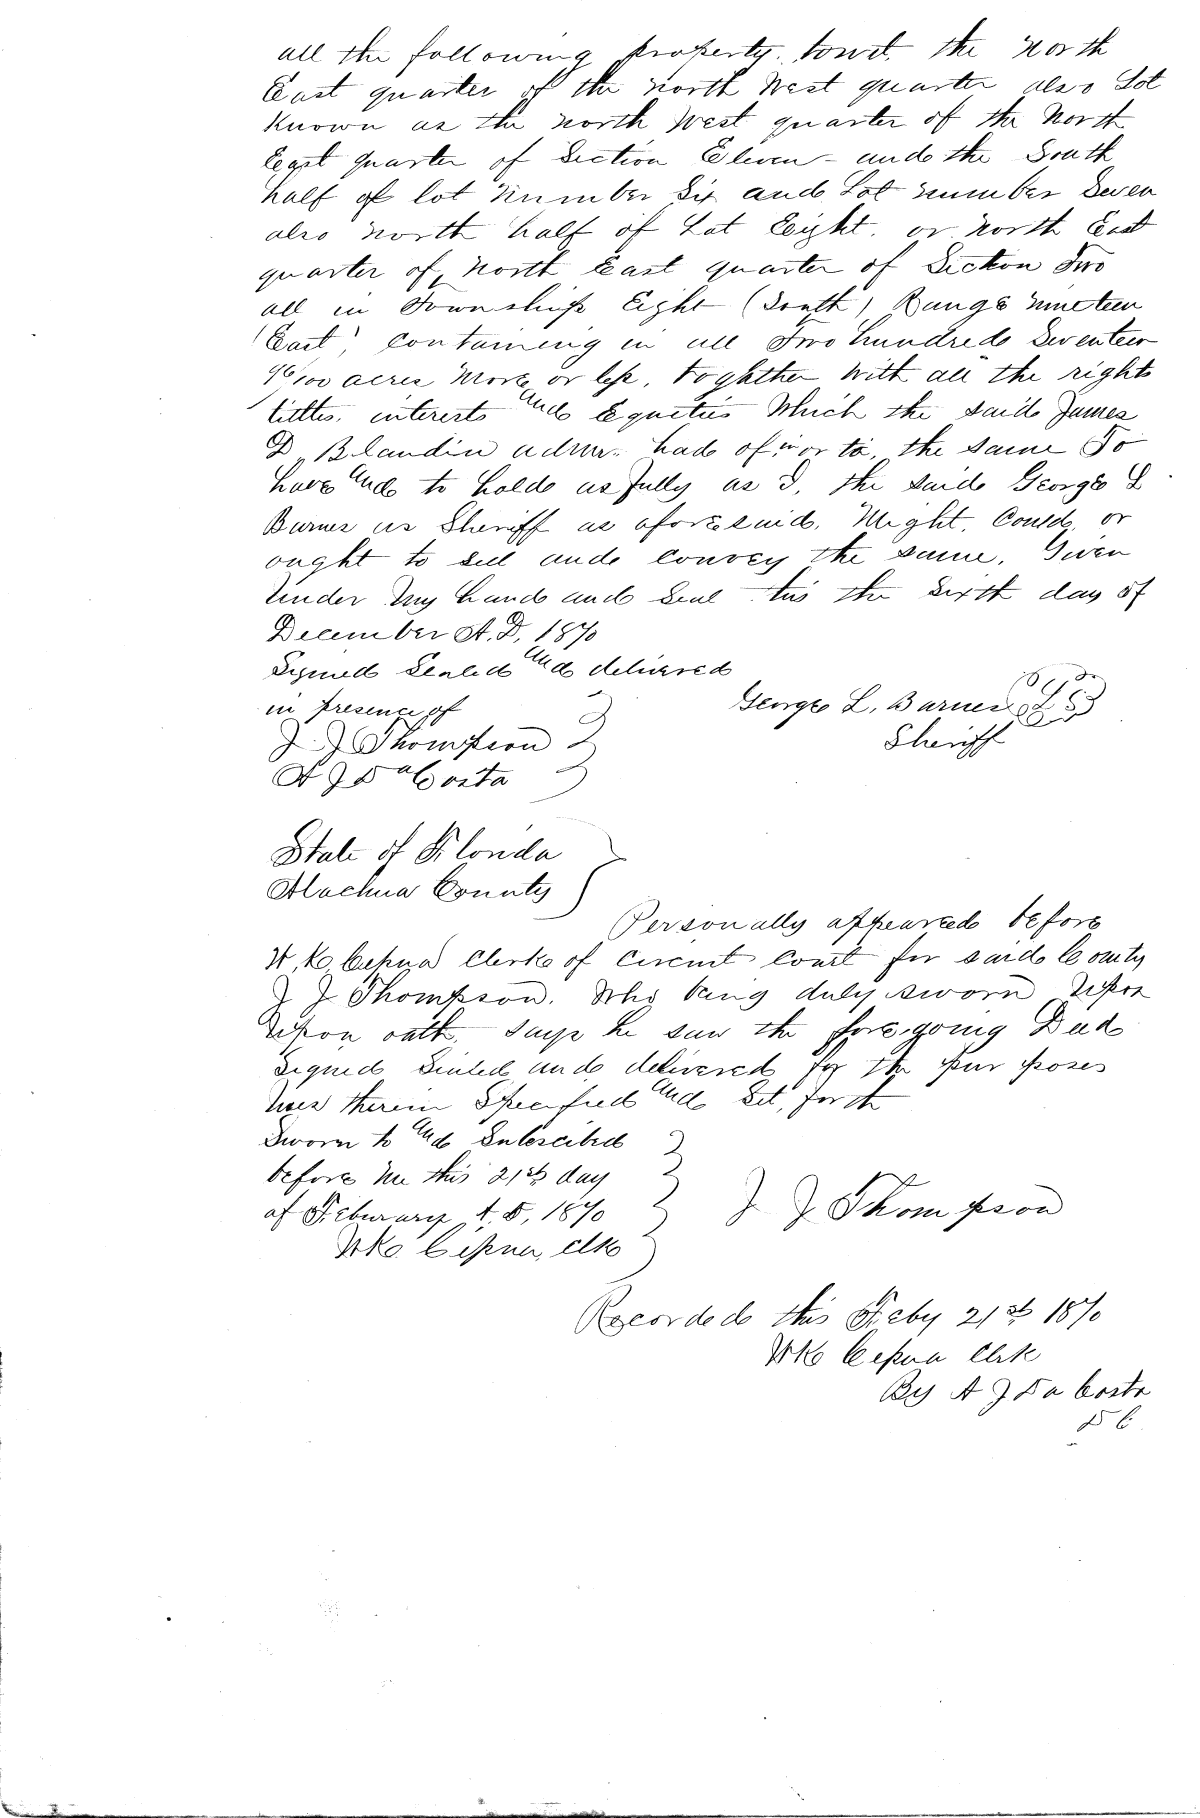 all the following property. towit. the North
East quarter of the North West quarter also Lot
Known as the North West quarter of the North
East quarter of Section Eleven - and the South
half of lot Number Six and Lot number Seven
also North half of Lot Eight. or North East
quarter of North East quarter of Section Two
all in Township Eight (South) Range Nineteen
(East) containing in all Two hundred Seventeen
96/100 acres More or less, toghther With all the rights
tittles. interests and Equeties Which the said James
D. Blandin admr. had of in or to, the same To
have and to hold as fully as I, the said George L
Barnes as Sheriff as aforesaid. Might, Could, or
ought to sell and convey the same. Given
Under My hand and Seal this the Sixth day of
December A.D. 1870
Signed Sealed and delivered
in presence of
George L. Barnes (L S)
Sheriff
J J Thompson
A J DaCosta
State of Florida
Alachua County
Personally appeared before
W. K. Cessna Clerk of Circuit Court for said County
J J Thompson. Who being duly sworn Upon
Upon oath. says he saw the foregoing Deed
Signed Sealed and delivered for the pur poses
Uses therein Specified and Set, forth
Sworn to and Subscibed
before Me this 21st day
of Feburary A. D. 1870
J J Thompson
W K Cessna, Clk
Recorded this Feby 21st 1870
W K Cessna Clrk
By A J Da Costa
D C